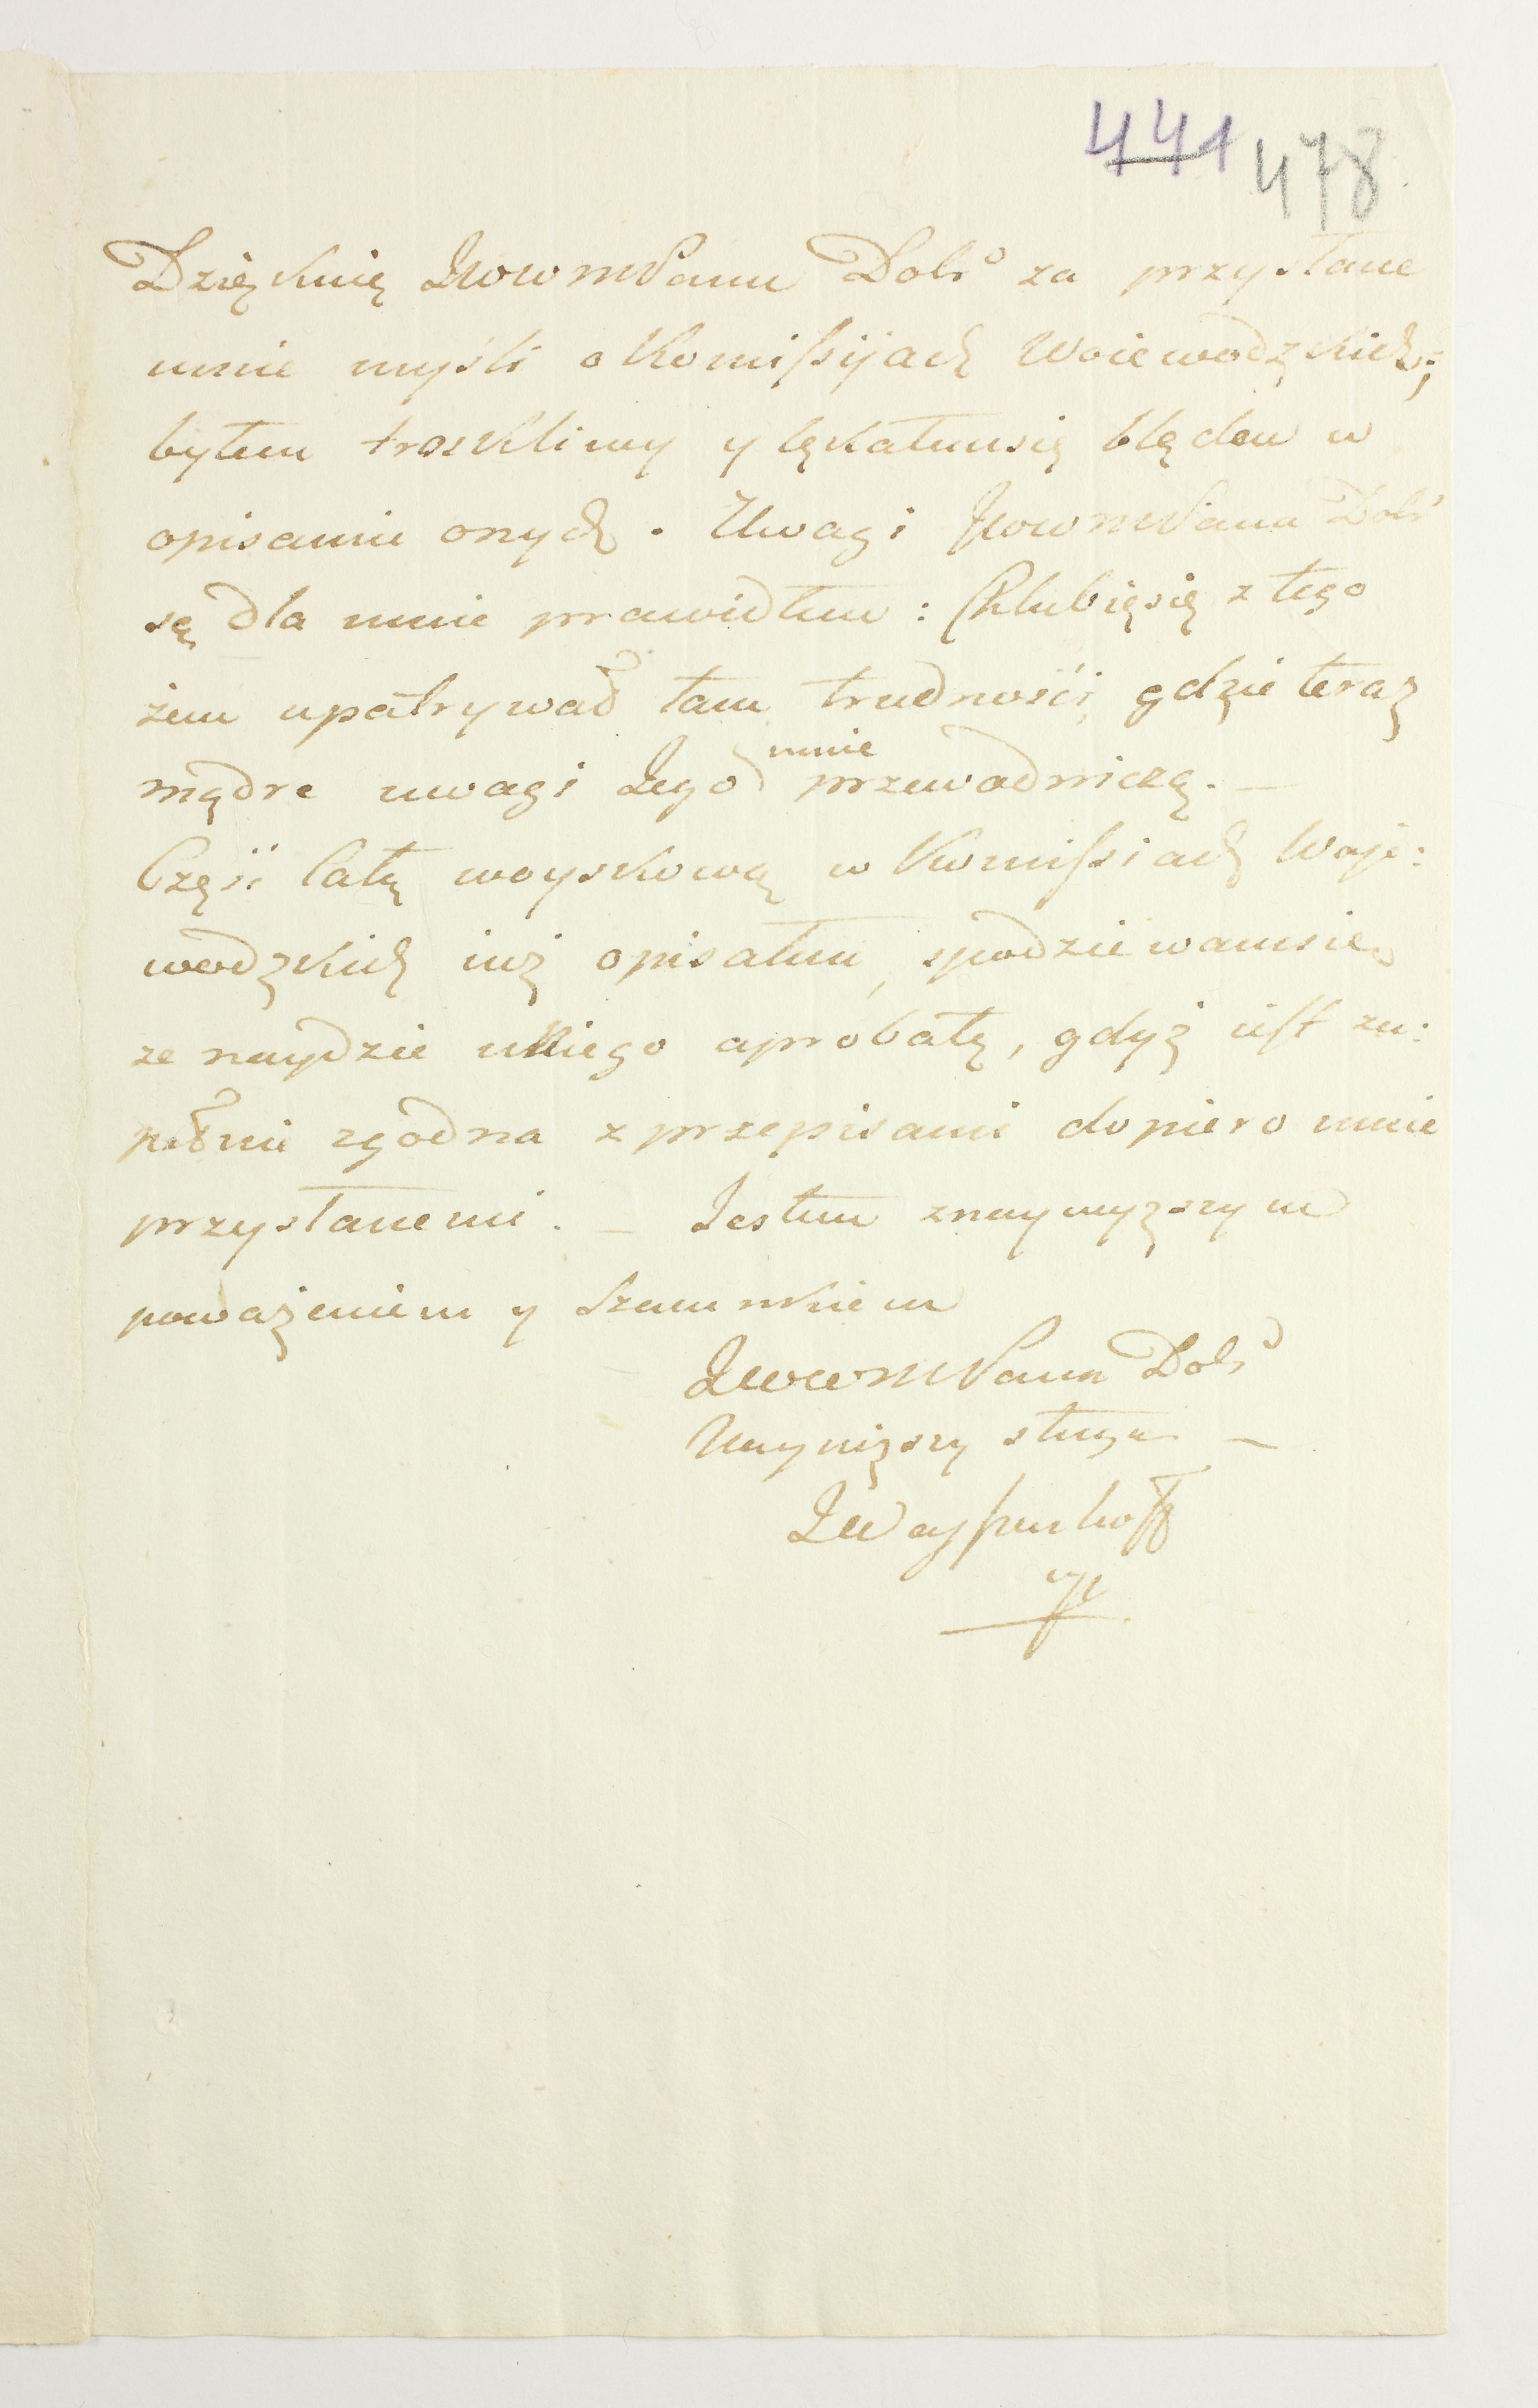 441 478
Dzięknię JWWMPanu Dobr za przysłane
mnie myśli o Komissyjach Woiewodzkich;
byłem troskliwy y lękałemsię błędow w
opisaniu onych. Uwagi JWWMPana Dobr
są dla mnie prawidłem: Chlubięsię z tego
żem upatrywał tam trudności, gdzie teraz
mądre uwagi Jego mnie przewodniczą. –
Część całą woyskową w Komissiach Woje:
wodzkich iuż opisałem, spodziewamsię
ze naydzie u Niego aprobatę, gdyż iest zu:
pełnie zgodna z przepisami dopiero mnie
przysłanemi. – Jestem z naywyższym
poważeniem y szacunkiem
JWWMPana Dobr
Nayniższy sługa –
JWayssenhoff